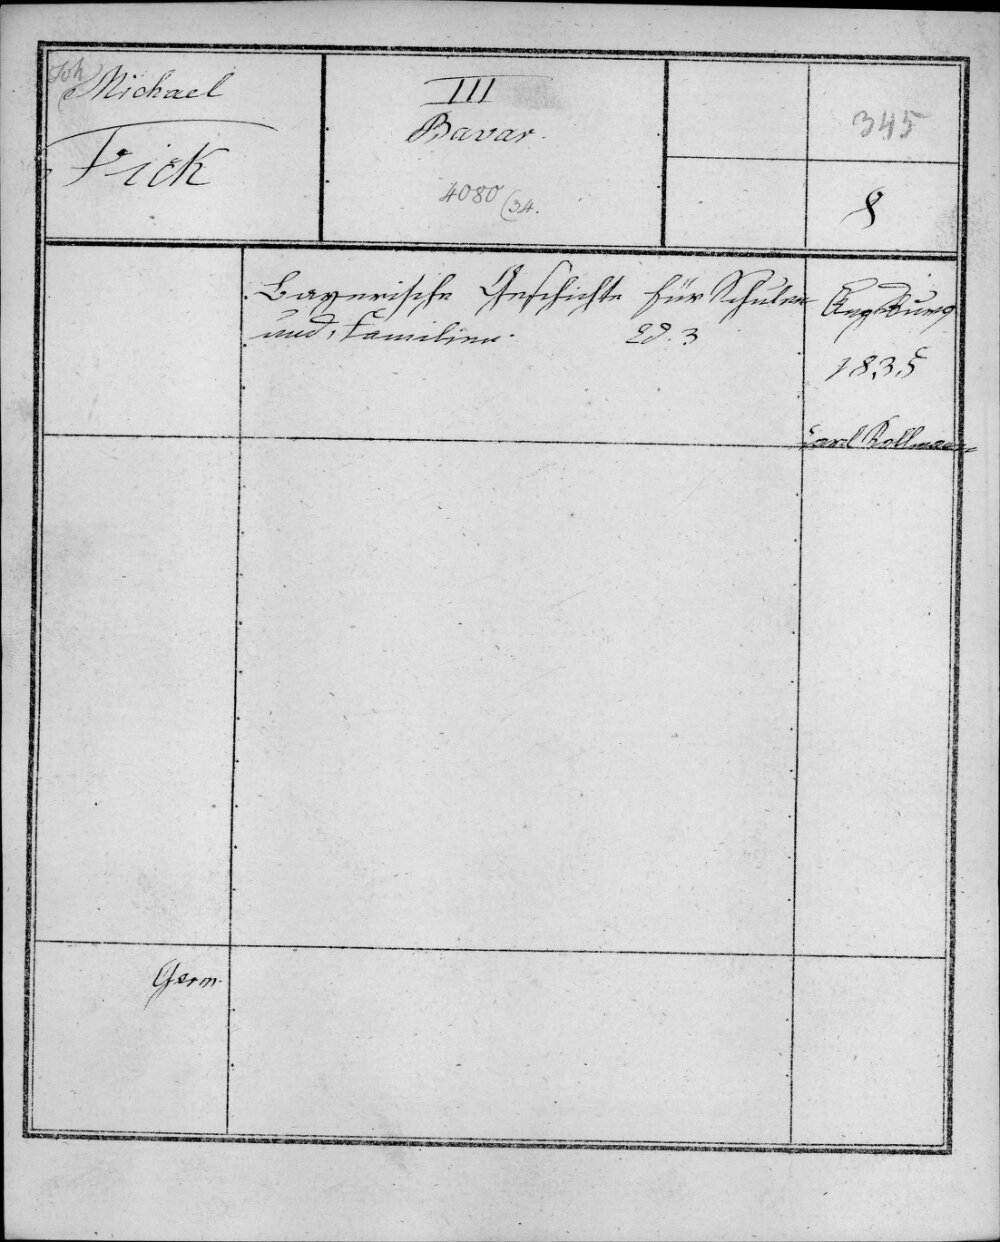 Joh
Michael
Fick
III
Bavar.
4080/34.
345
8
Bayerische Geschichte für Schulen
und Familien. Ed. 3
Augsburg
1835
Carl Kollmann
Germ.